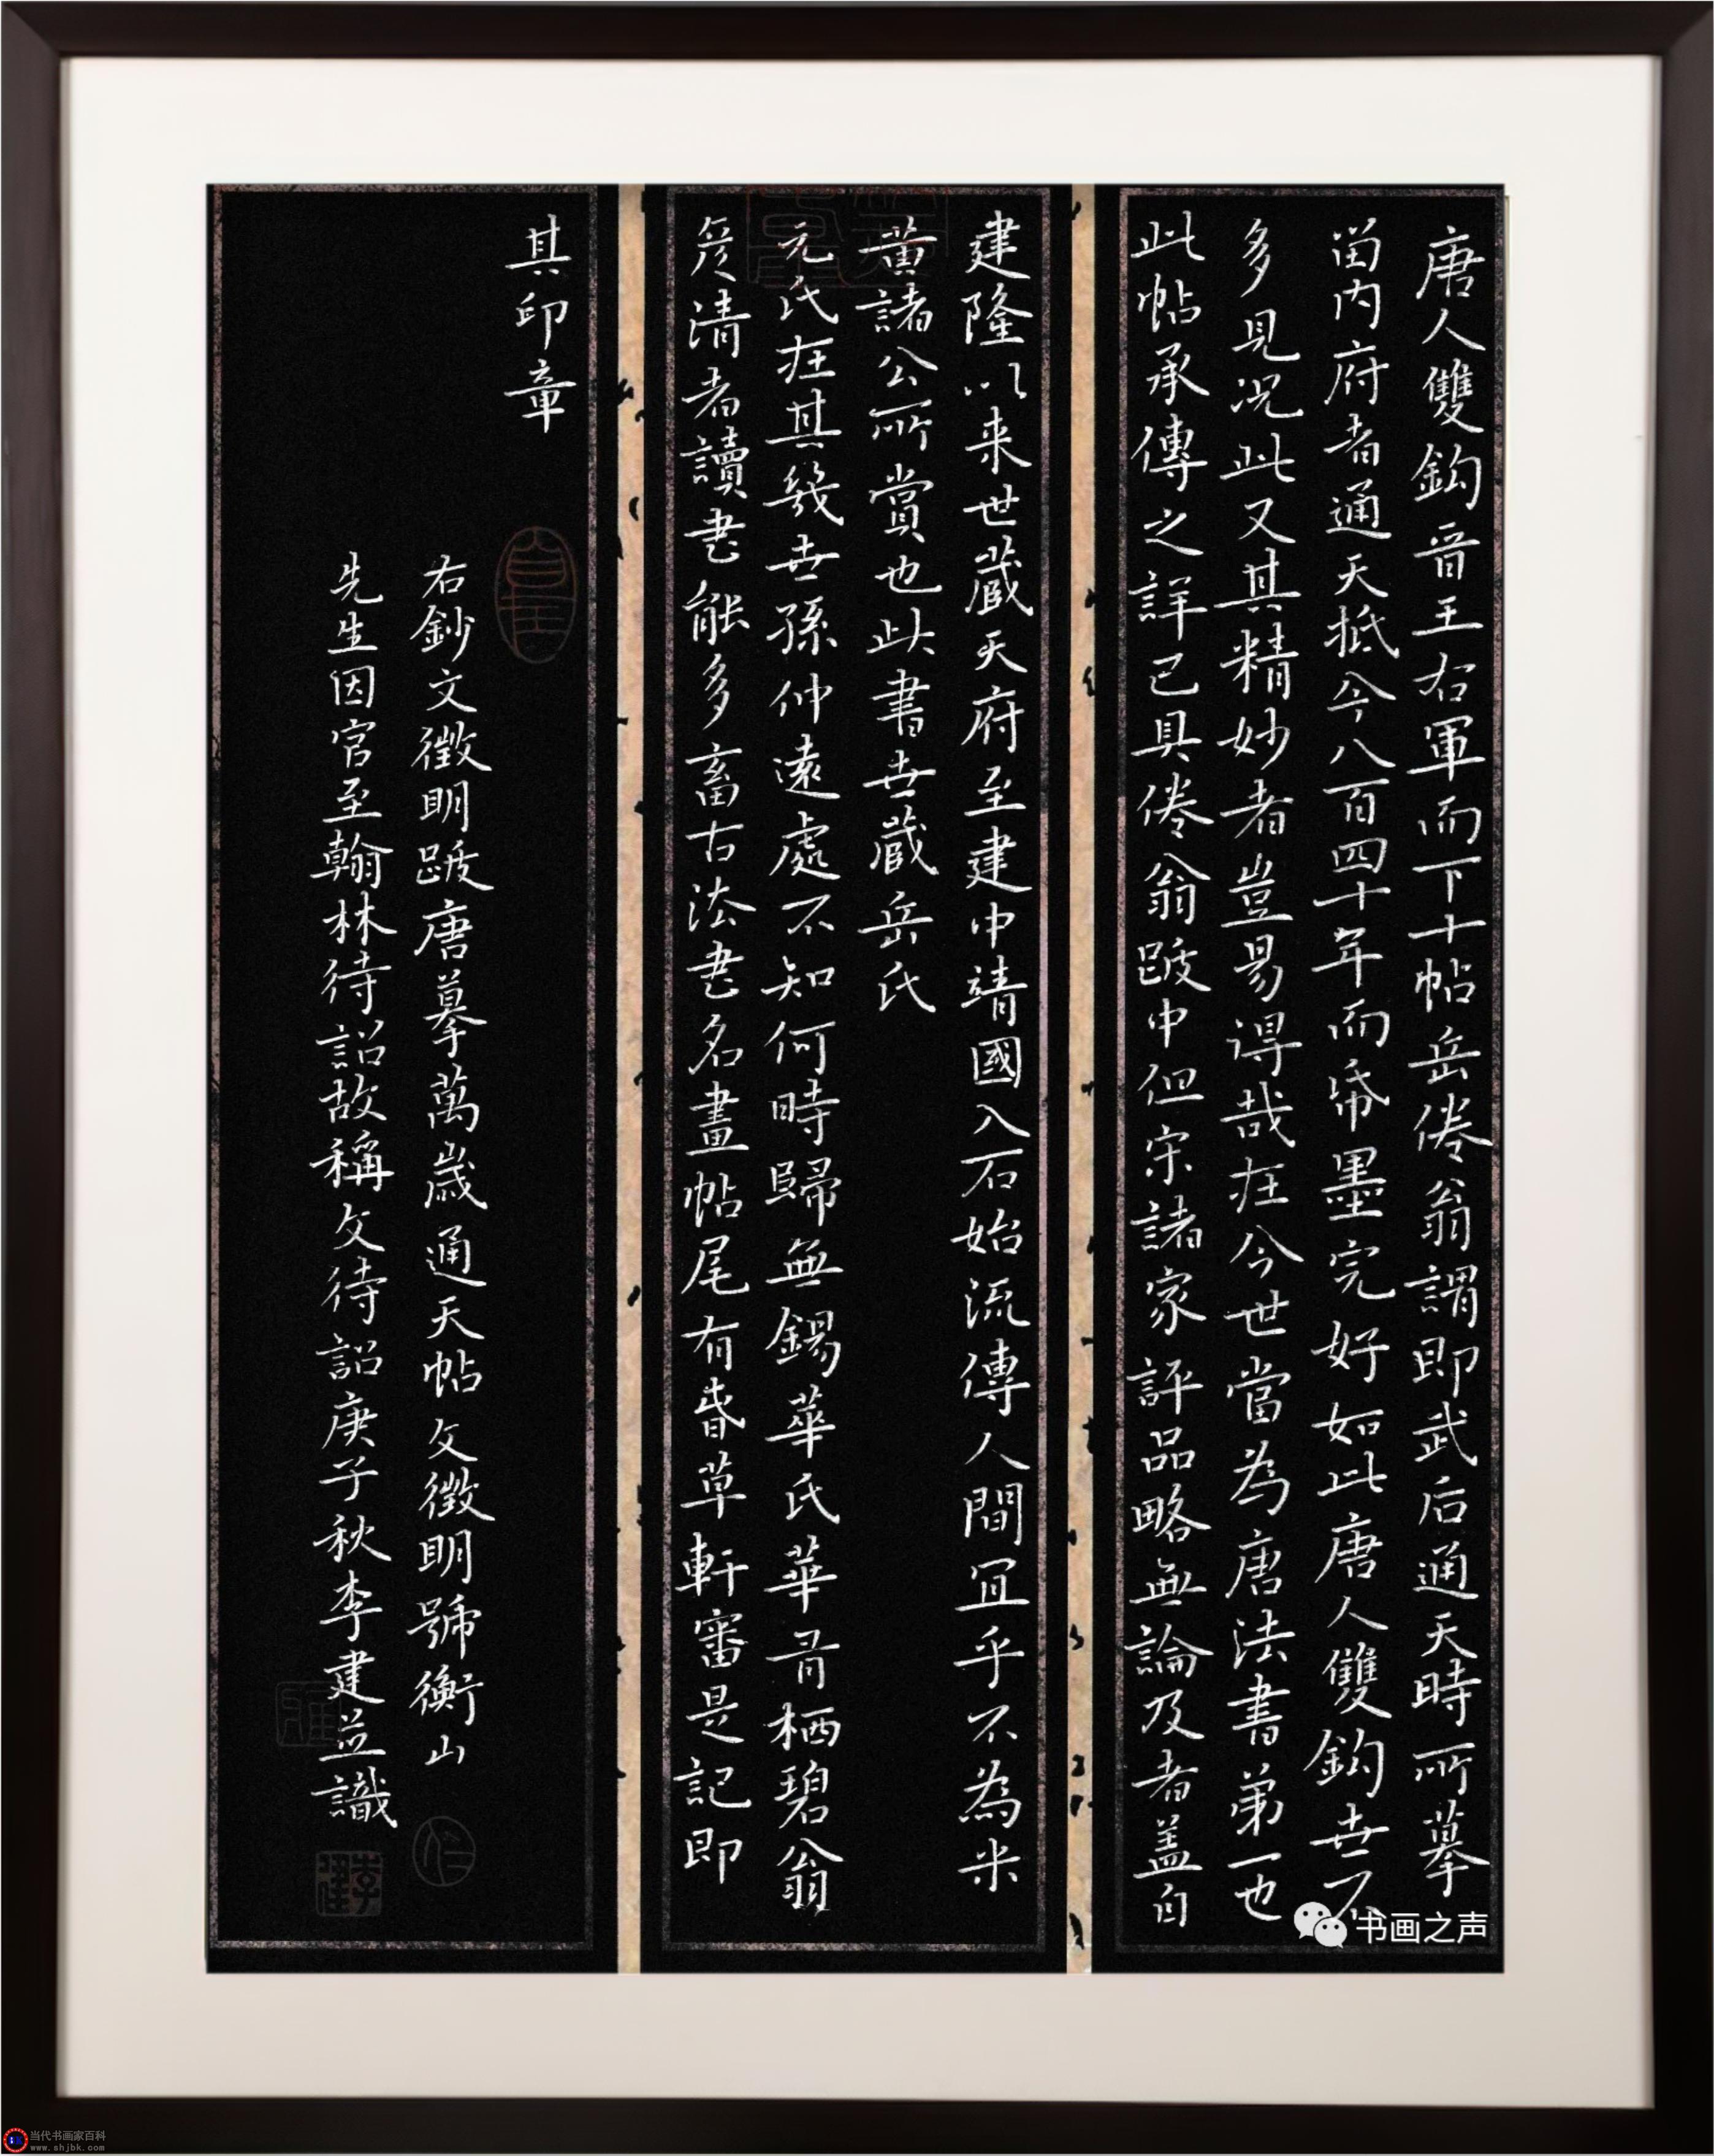 唐人雙鈎晉王右軍而下十帖岳倦翁謂即武后通天時所摹
留内府者通天抵今八百四十年而帋墨完好如此唐人雙鈎世不
多見况此又其精妙者豈易得哉在今世當為唐法書第一也
此帖承傳之詳已具倦翁跋中但宋諸家評品略無論及者盖自
建隆以来世蔵天府至建中靖國入石始流傳人間冝乎不為米
黄諸公所賞也此書世蔵岳氏
元氏在其幾世孫仲遠處不知何時歸無錫華氏華有栖碧翁
彦清者讀書能多畜古法書名畫帖尾有春草軒審是記即
其印章
右鈔文徵明跋唐摹萬歲通天帖文徵明號衡山
先生因官至翰林待詔故稱文待詔庚子秋李建益識
书画之声
当代书画家百科
www.shjbk.com